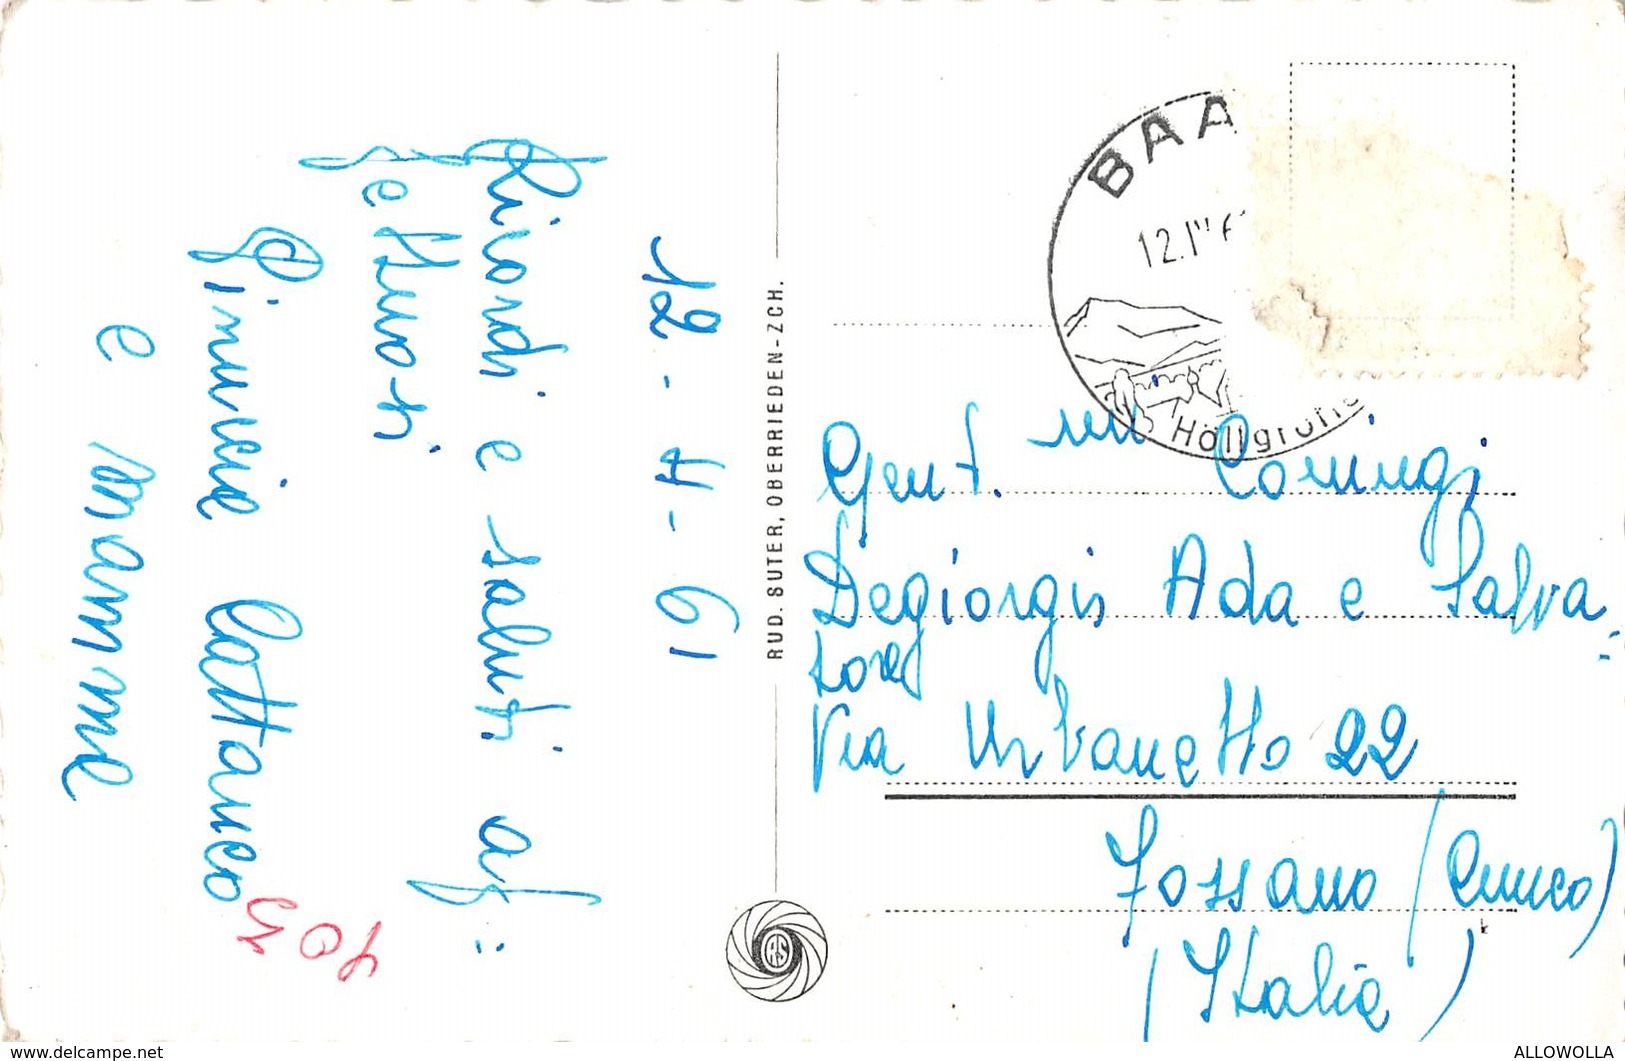 12-4-61
Ricordi e saluti af=
fettuosi
Pinuccia Cattaneo
e mamma
RUD. SUTER, OBERRIEDEN-ZCH.
BAA
12.IV 6
Höllgrotte
Gent. mi Comingi
Degiorgis Ada e Salva=
tore
Via Urbanetto 22
Fossano (Cuneo)
(Italia)
www.delcampe.net
ALLOWOLLA